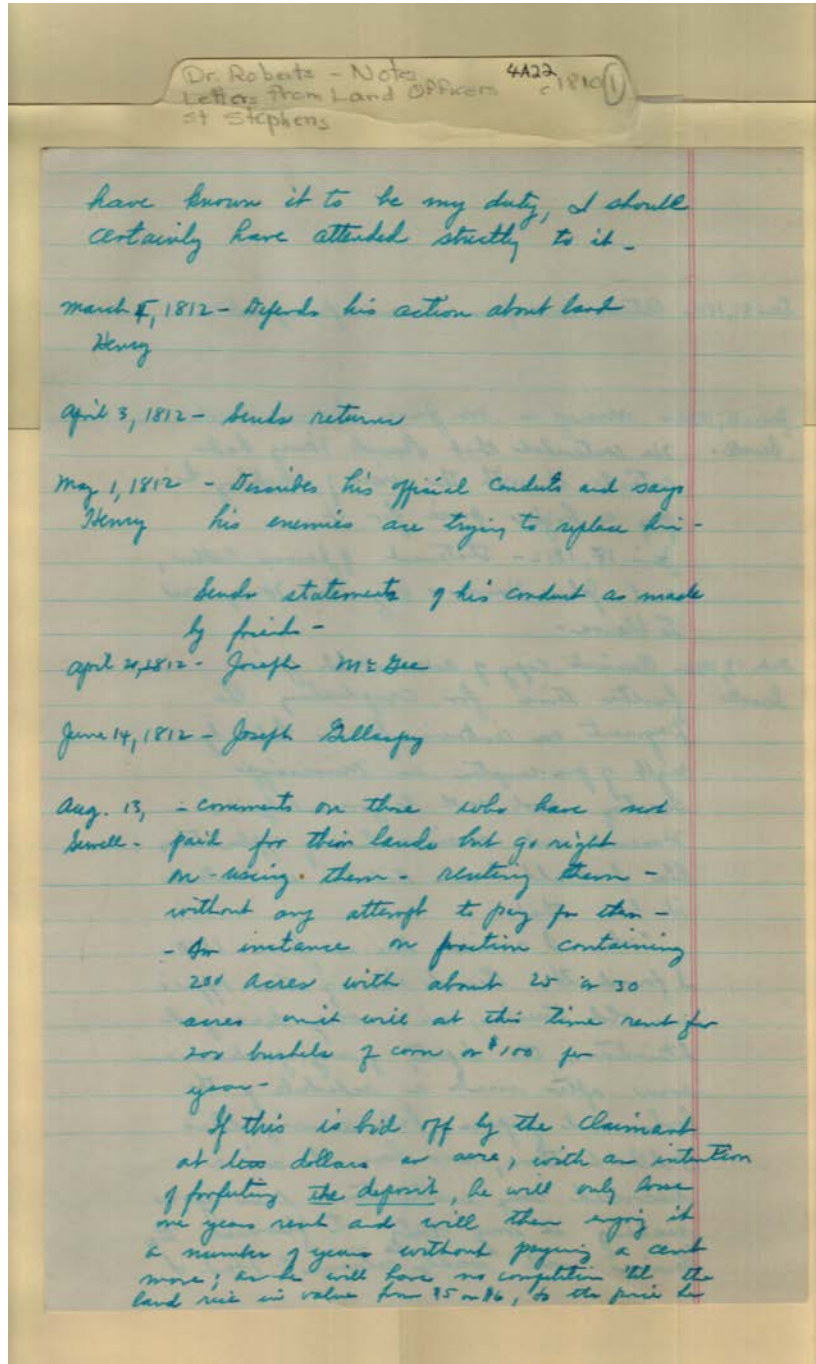 Dr. Roberts - Notes 4A22 c 1810 1
Letters from Land Officers
St Stephens
have known it to be my duty, I should
certainly have attended strictly to it -
March 1, 1812 - Defends his action about land
Henry
April 3, 1812 - Sends returns
May 1, 1812 - Describes his official conduct and says
Henry his enemies are trying to replace him -
Sends statements of his conduct as made
by friends -
April 20, 1812 - Joseph McGee
June 14, 1812 - Joseph Gillaspy
Aug. 13, - comments on those who have not
Sewell - paid for their lands but go right
on - using them - renting them -
without any attempt to pay for them -
- An instance on fraction containing
200 acres with about 25 or 30
acres will at this time rent for
200 bushels of corn or $100 per
year -
If this is bid off by the claimant
at dollars an acre, with an intention
of forfeiting the deposit, he will only lose
one years rent and will then enjoy it
a number of years without paying a cent
more; as he will have no competition 'til the
land rise in value from $5 or $6, to the price he